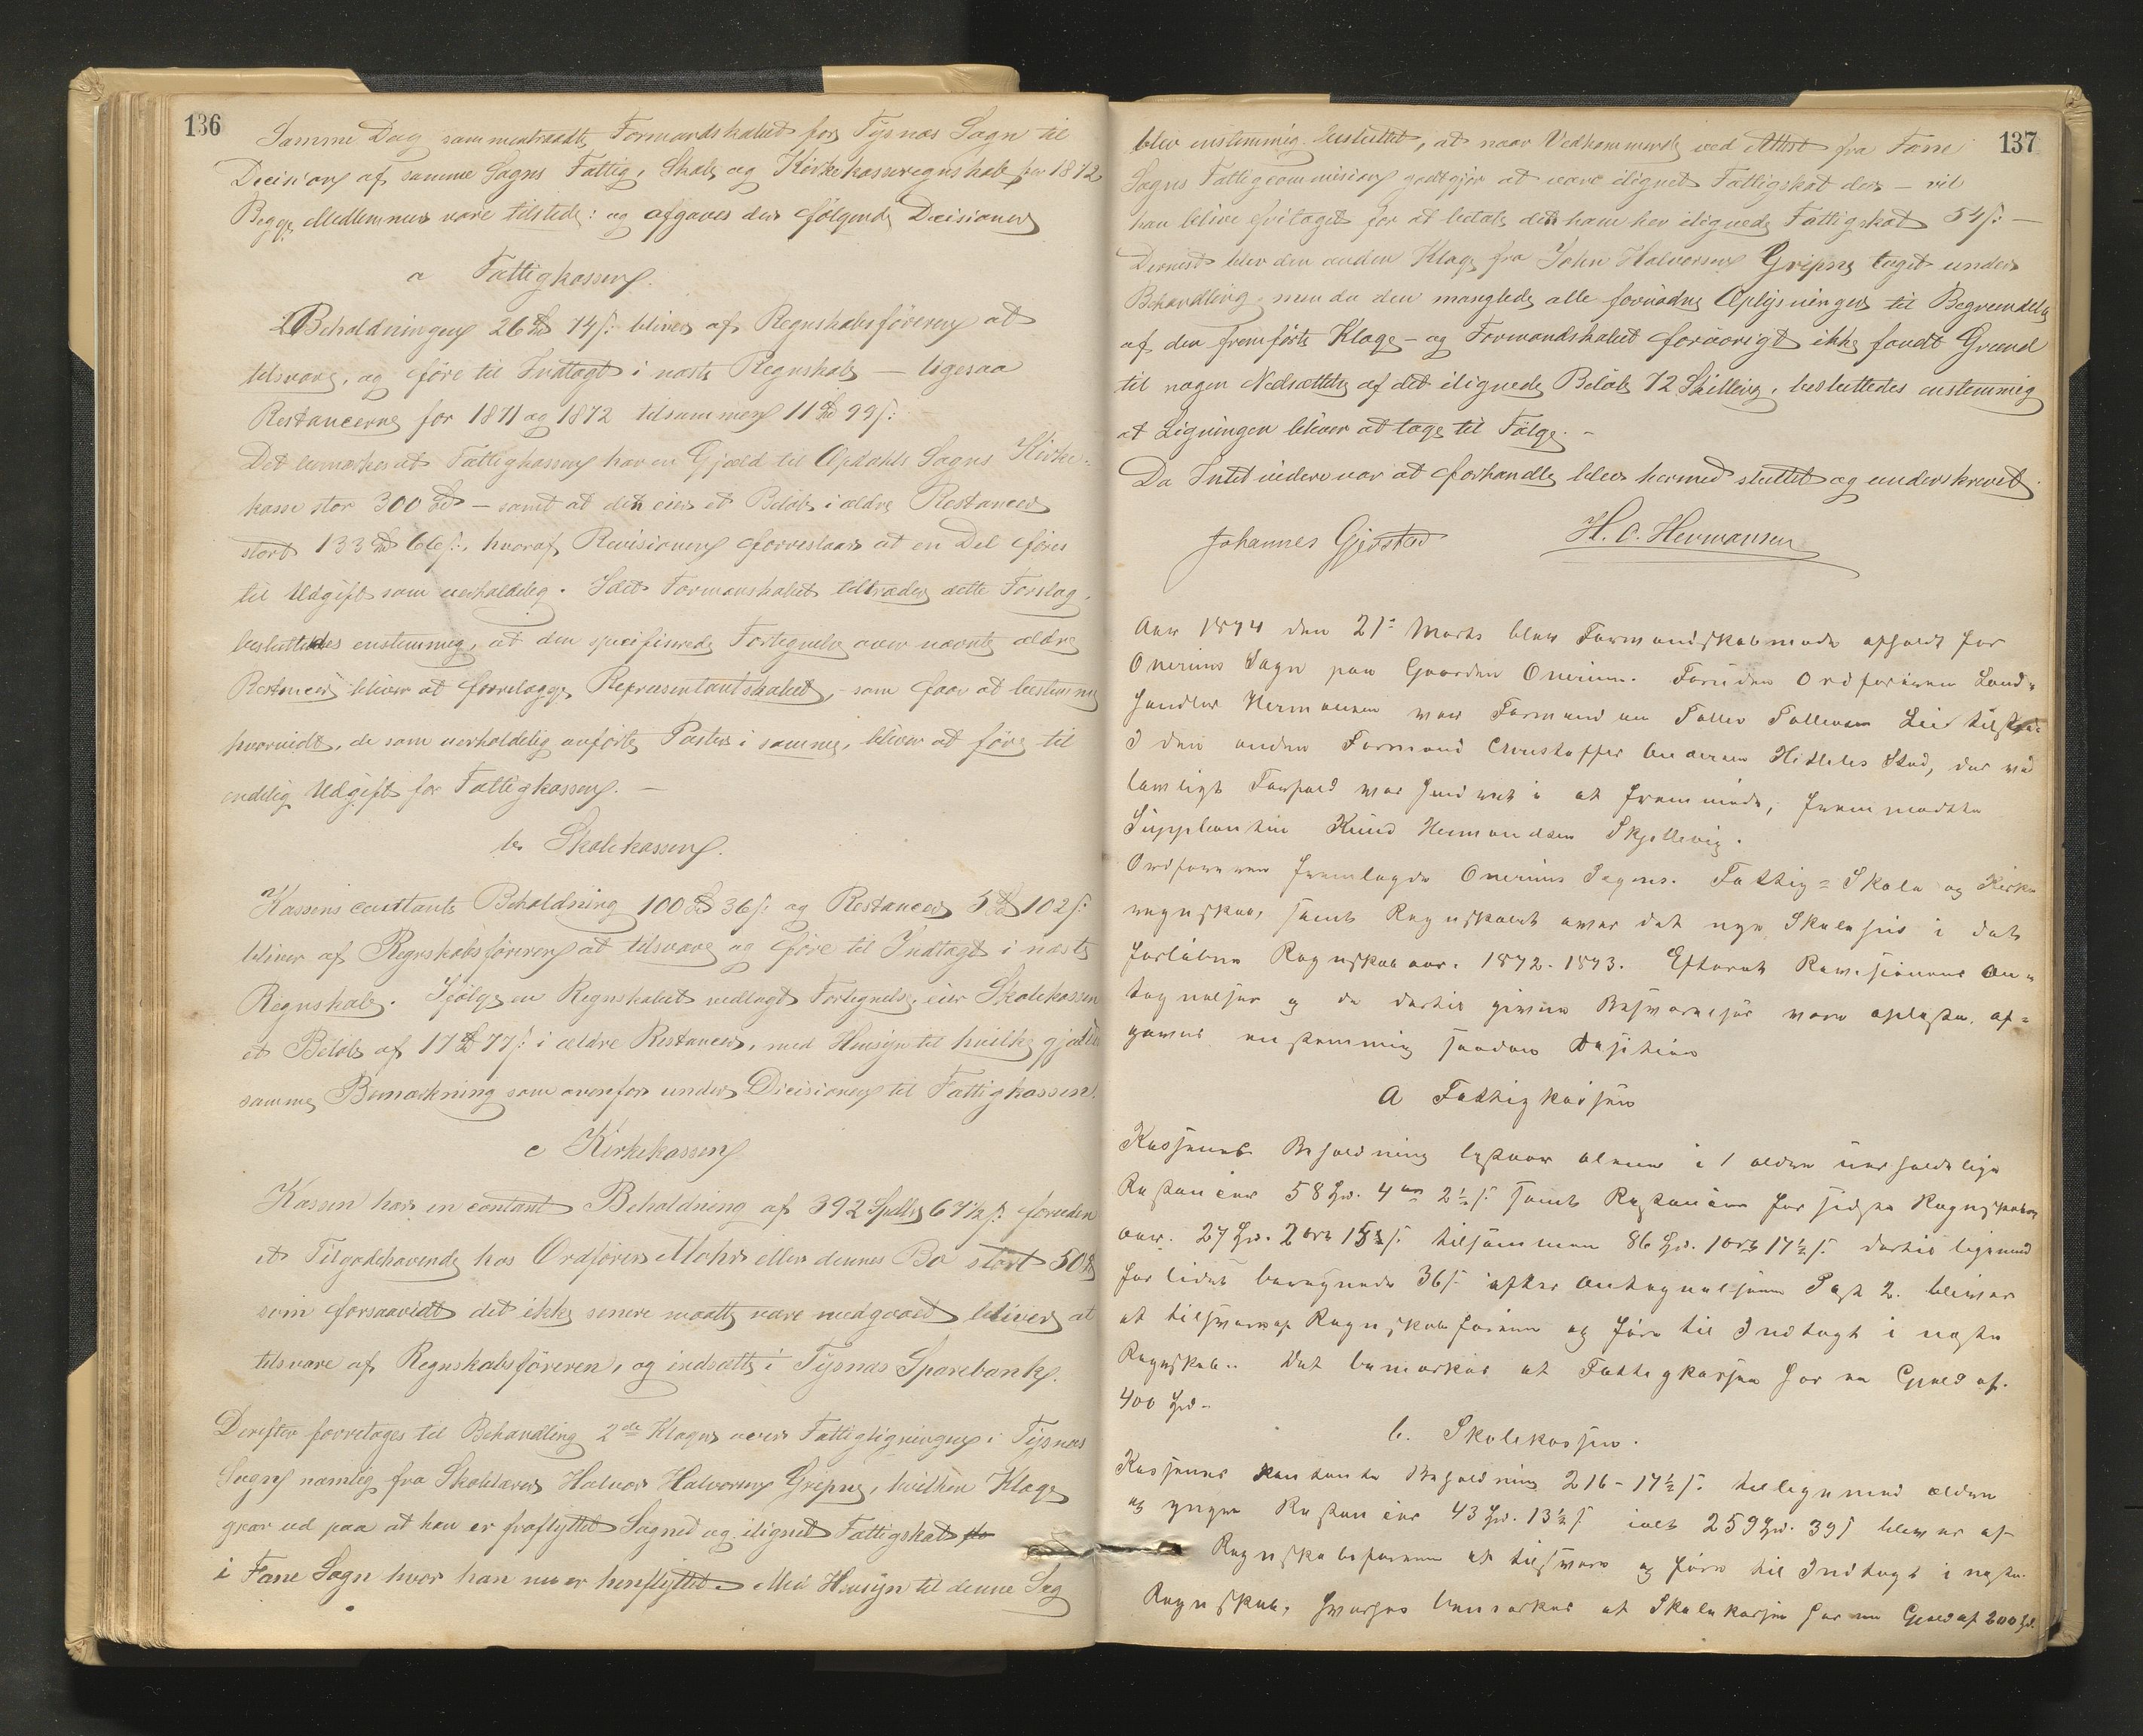 136
Samme Dag sammentraadte Formandskabet for Tysnæs Sogn til
Decision af samme Sogns Fattig, Skole og Kirkekasseregnskab for 1872
Begge Medlemmer vare tilstede: og afgaves der følgende Decisioner
a Fattigkassen.
Beholdningen 26 Spd 74 s: bliver af Regnskabsføreren at
tilsvare, og føre til Indtægt i næste Regnskab – ligesaa
Restancerne for 1871 og 1872 tilsammen 11 Spd 99 s:
Det bemærkes at Fattigkassen har en Gjæld til Opdahls Sogns Kirke-
kasse stor 300 Spd – samt at den eier et Beløb i ældre Restancer
stort 133 Spd 66 s:, hvoraf Revisionen foreslaar at en Del føres
til Udgift som uerholdelig. Idet Formanskabet tiltræder dette Forslag,
besluttedes enstemmig, at den specifiserede Fortegnelse over nævnte ældre
Restancer bliver at forelægge Repræsentantskabet, – som faar at bestemme
hvorvidt, de som uerholdelig anførte Poster i samme, bliver at føre til
endelig Udgift for Fattigkassen. –
b. Skolekassen.
Kassens contante Beholdning 100 Spd 36 s: og Restancer 5 Spd 102 s:
bliver af Regnskabsføreren at tilsvare og føre til Indtægt i næste
Regnskab. Ifølge en Regnskabet vedlagt Fortegnelse, eier Skolekassen
et Beløb af 17 Spd 77 s: i ældre Restancer, med Hensyn til hvilke gjælder
samme Bemærkning som ovenfor under Decisionen til Fattigkassen.
c Kirkekassen
Kassen har en contant Beholdning af 392 Spdlr 67½ s: foruden
et Tilgodehavende hos Ordfører Mohr eller dennes Bo stort 50 Spd
som forsaavidt det ikke senere maatte være medgaaet bliver at
tilsvare af Regnskabsføreren, og indsætte i Tysnæs Sparebank.
Derefter foretages til Behandling 2de Klager over Fattigligningen i Tysnæs
Sogn nemlig fra Skolelærer Halvor Halvorsen Gripne, hvilken Klage
gaar ud paa at han er fraflyttet Sognet og ilignet Fattigskat
i Fane Sogn hvor han nu er henflyttet. Med Hensyn til denne Sag
137
blev enstemmig besluttet, at naar Vedkommende ved Attest fra Fane
Sogns Fattigcommision godtgjør at være ilignet Fattigskat der – vil
han blive fritaget for at betale den ham her ilignede Fattigskat 54 s: –
Dernæst blev den anden Klage fra John Halvorsen Gripne taget under
Behandling, men da den manglede alle fornødne Oplysninger til Begrundelse
af den fremførte Klage – og Formandskabet forøvrigt ikke fandt Grund
til nogen Nedsættelse af det ilignede Beløb 72 Skilling, besluttedes enstemmig
at Ligningen bliver at tage til Følge. –
Da Intet videre var at forhandle blev hermed sluttet og underskrevet.
Johannes Gjøsted H. C. Hermansen
Aar 1874 den 21de Marts blev Formandskabmøde afholdt for
Onerims Sogn paa Gaarden Onerim. Foruden Ordføreren Land-
handler Hermansen var Formanden Tollev Tollevsen Lie tilstede
I den anden Formand Christoffer Andersen Stød, der ved
lovligt Forfald var hindret i at fremmøde, fremmødte
Suppleanten Knud Hermandsen Skjellevig.
Ordføreren fremlagde Onerims Sogns Fattig- Skole og Kirke
regnskab, samt Regnskabet over det nye Skolehus i det
forløbne Regnskabaar. 1872-1873. Efterat Revisionens An-
tegnelser og de dertil givne Besvarelser vare oplæste, af-
gaves enstemmig saadan Desition
a Fattigkassen
Kassens Beholdning bestaar alene i ældre uerholdelige
Restancer 58 Spd. 4 ort 2½ s. samt Restancer for sidste Regnskabs
aar. 27 Spd. 2 ort 15 s. tilsammen 86 Spd. 1 ort 17½ s. dertil ligemed
for lidet beregnede 36 s. efter Antegnelsen Post 2. bliver
at tilsvare af Regnskabsføreren og føre til Indtægt i næste
Regnskab. Det bemærkes at Fattigkassen har en Gjæld af
400 Spd.
b. Skolekassen.
Kassens kontante Beholdning 216 – 17½ s. tilligemed ældre
og yngre Restancer 43 Spd. 13½ s. ialt 259 Spd. 39 s bliver af
Regnskabsføreren at tilsvare og føre til Indtægt i næste
Regnskab, hvorhos bemærkes at Skolekassen har en Gjæld af 200 Spd.